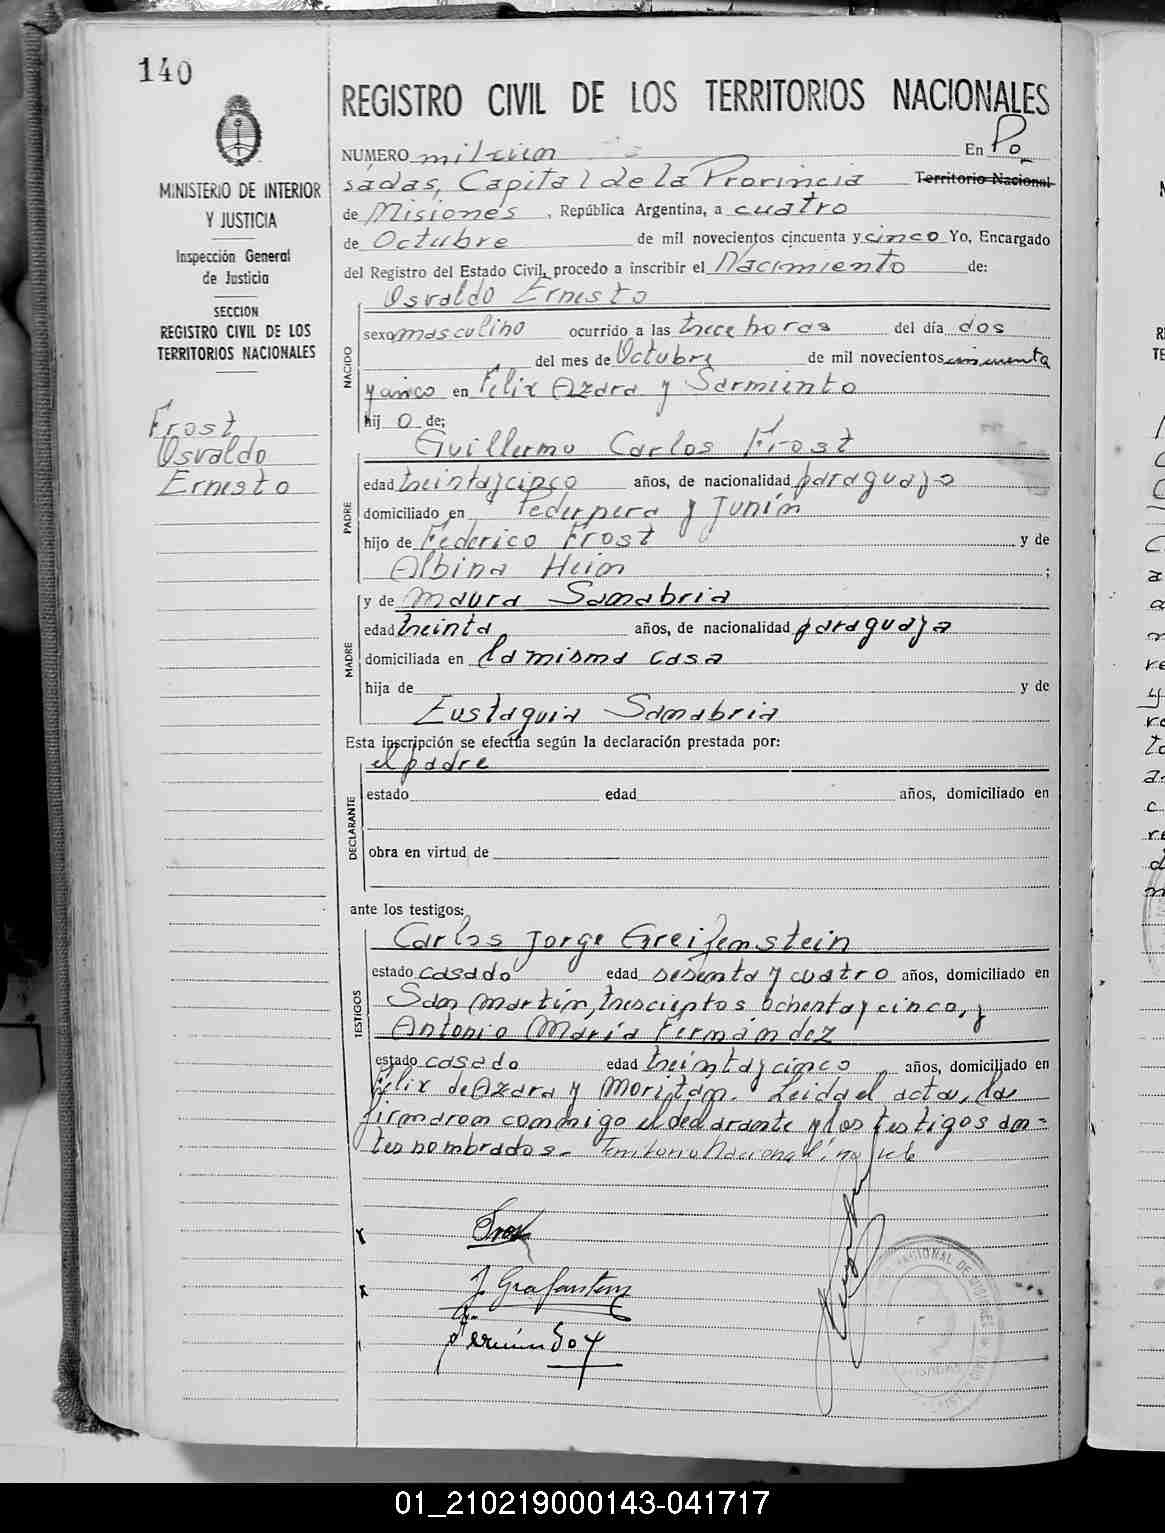 140
MINISTERIO DE INTERIOR
Y JUSTICIA
Inspección General
de Justicia
SECCION
REGISTRO CIVIL DE LOS
TERRITORIOS NACIONALES
Frost
Osvaldo
Ernesto
REGISTRO CIVIL DE LOS TERRITORIOS NACIONALES
NUMERO mil cien En Po
sadas, Capital de la Provincia Territorio Nacional
de Misiones, República Argentina, a cuatro
de Octubre de mil novecientos cincuenta y cinco Yo, Encargado
del Registro del Estado Civil, procedo a inscribir el Nacimiento de:
NACIDO
Osvaldo Ernesto
sexo masculino ocurrido a las trece horas del día dos
del mes de Octubre de mil novecientos cincuenta
y cinco en Felix Azara y Sarmiento
hij o de;
PADRE
Guillermo Carlos Frost
edad treinta y cinco años, de nacionalidad paraguayo
domiciliado en y Junín
hijo de Federico Frost y de
Albina Heim ;
MADRE
y de Maura Sanabria
edad treinta años, de nacionalidad paraguaya
domiciliada en la misma casa
hija de y de
Eustaquia Sanabria
Esta inscripción se efectúa según la declaración prestada por:
DECLARANTE
el padre
estado edad años, domiciliado en
obra en virtud de
ante los testigos:
TESTIGOS
Carlos Jorge Greifenstein
estado casado edad sesenta y cuatro años, domiciliado en
San Martín, trescientos ochenta y cinco, y
Antonio María Fernández
estado casado edad treinta y cinco años, domiciliado en
Felix de Azara y Moritán. Leida el acta, la
firmaron conmigo el declarante y los testigos an=
tes nombrados.- Territorio Nacional: no vale
01_210219000143-041717